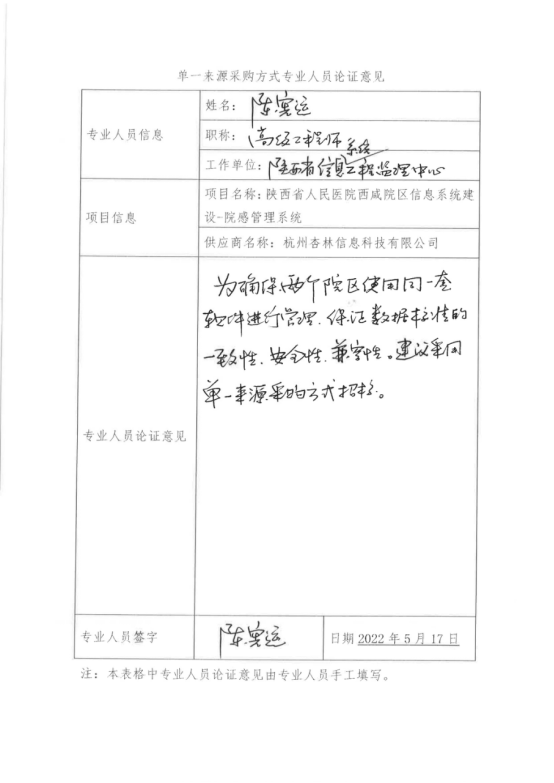 单一来源采购方式专业人员论证意见
专业人员信息
姓名：陈宝运
职称：高级工程师
系统
工作单位：陕西省信息工程监理中心
项目信息
项目名称：陕西省人民医院西咸院区信息系统建
设-院感管理系统
供应商名称：杭州杏林信息科技有限公司
专业人员论证意见
为确保两个院区使用同一套
软件进行管理、保证数据标准的
一致性、安全性、兼容性。建议采用
单一来源采购方式招标。
专业人员签字
陈宝运
日期 2022 年 5 月 17 日
注：本表格中专业人员论证意见由专业人员手工填写。